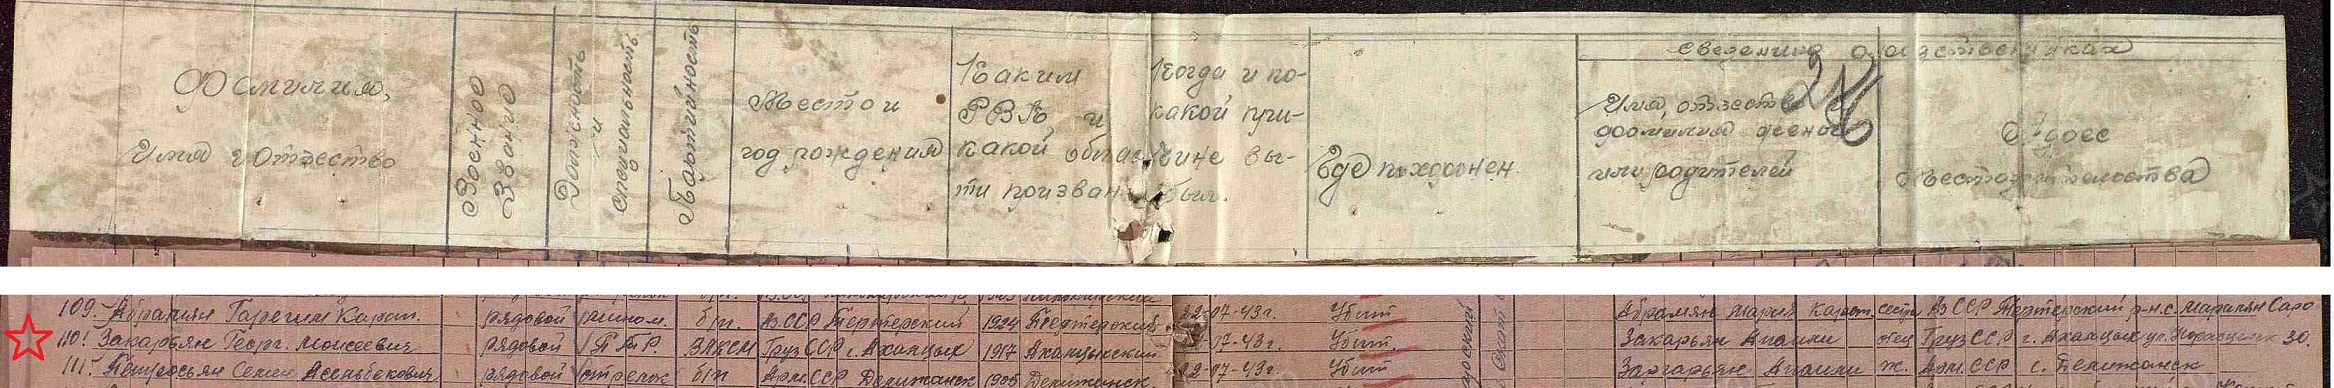 Фамилия,
Имя и отчество
Военное
Звание
Должность
и
специальность
Партийность
Место и
год рождения
Каким
РВК и
какой облас
ти призван
Когда и по-
какой при-
чине вы-
был.
Где похоронен.
Сведения о родственниках
Имя, отчество и
фамилия жены
или родителей
Адрес
местожительства
109. Абрамян Гарегин Карап. рядовой б/п. Аз.ССР Тертерский 1924 Тертерский 22-07-43г. Убит Абрамян Мария Карап. сестра Аз ССР Тертерский р-н с.
110. Закарьян Георг. Моисеевич рядовой ПТР. ВЛКСМ Груз ССР г. Ахалцых 1917 Ахалцыхский 07-43г. Убит Закарьян отец Груз ССР г. Ахалцых ул. 30.
111. Петросьян Семен Асельбекович. рядовой стрелок б/п Арм.ССР Делижанск 1905 Делижанск. 22-07-43г. Убит Заргарьян ж. Арм. ССР с. Делижанск